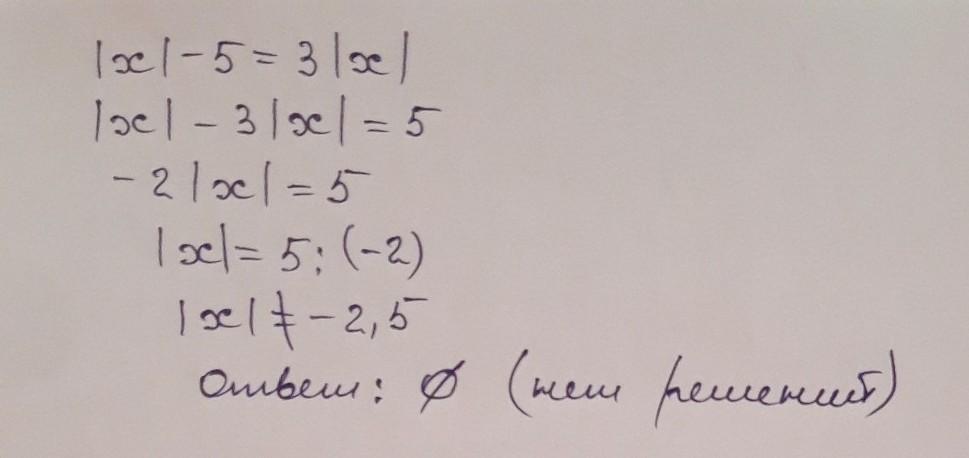 |x| - 5 = 3 |x|
|x| - 3 |x| = 5
- 2 |x| = 5
|x| = 5 : (-2)
|x| ≠ - 2,5
Ответ: ∅ (нет решений)